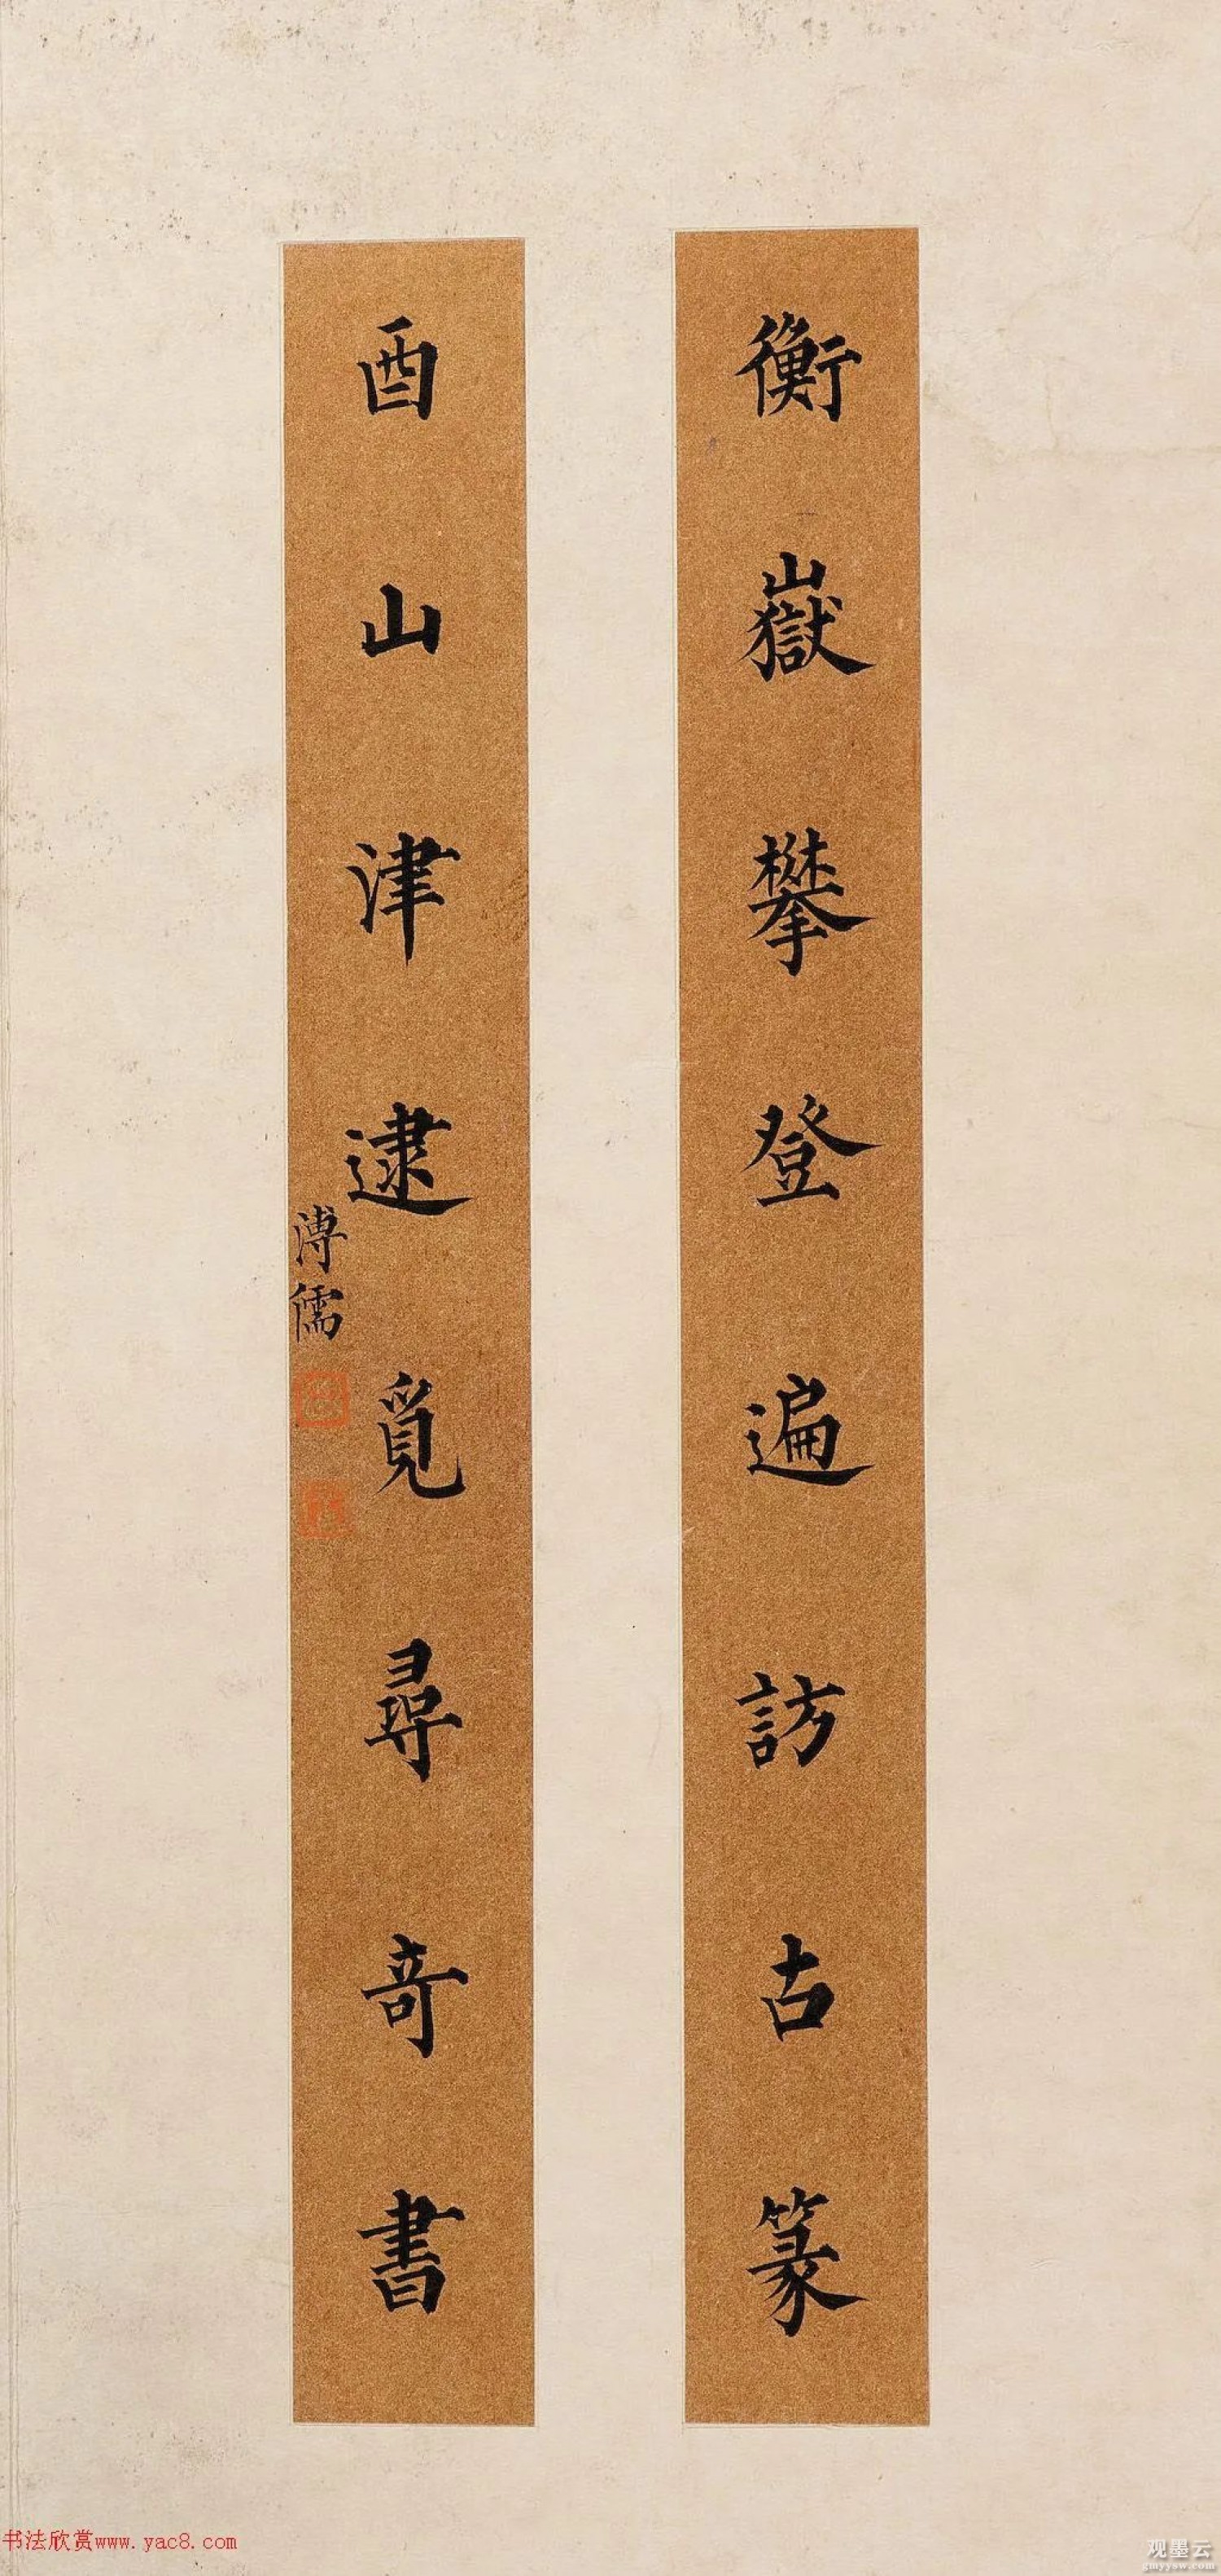 衡嶽攀登遍訪古篆
酉山津逮覓尋奇書
溥儒
书法欣赏www.yac8.com
观墨云
gmyysw.com